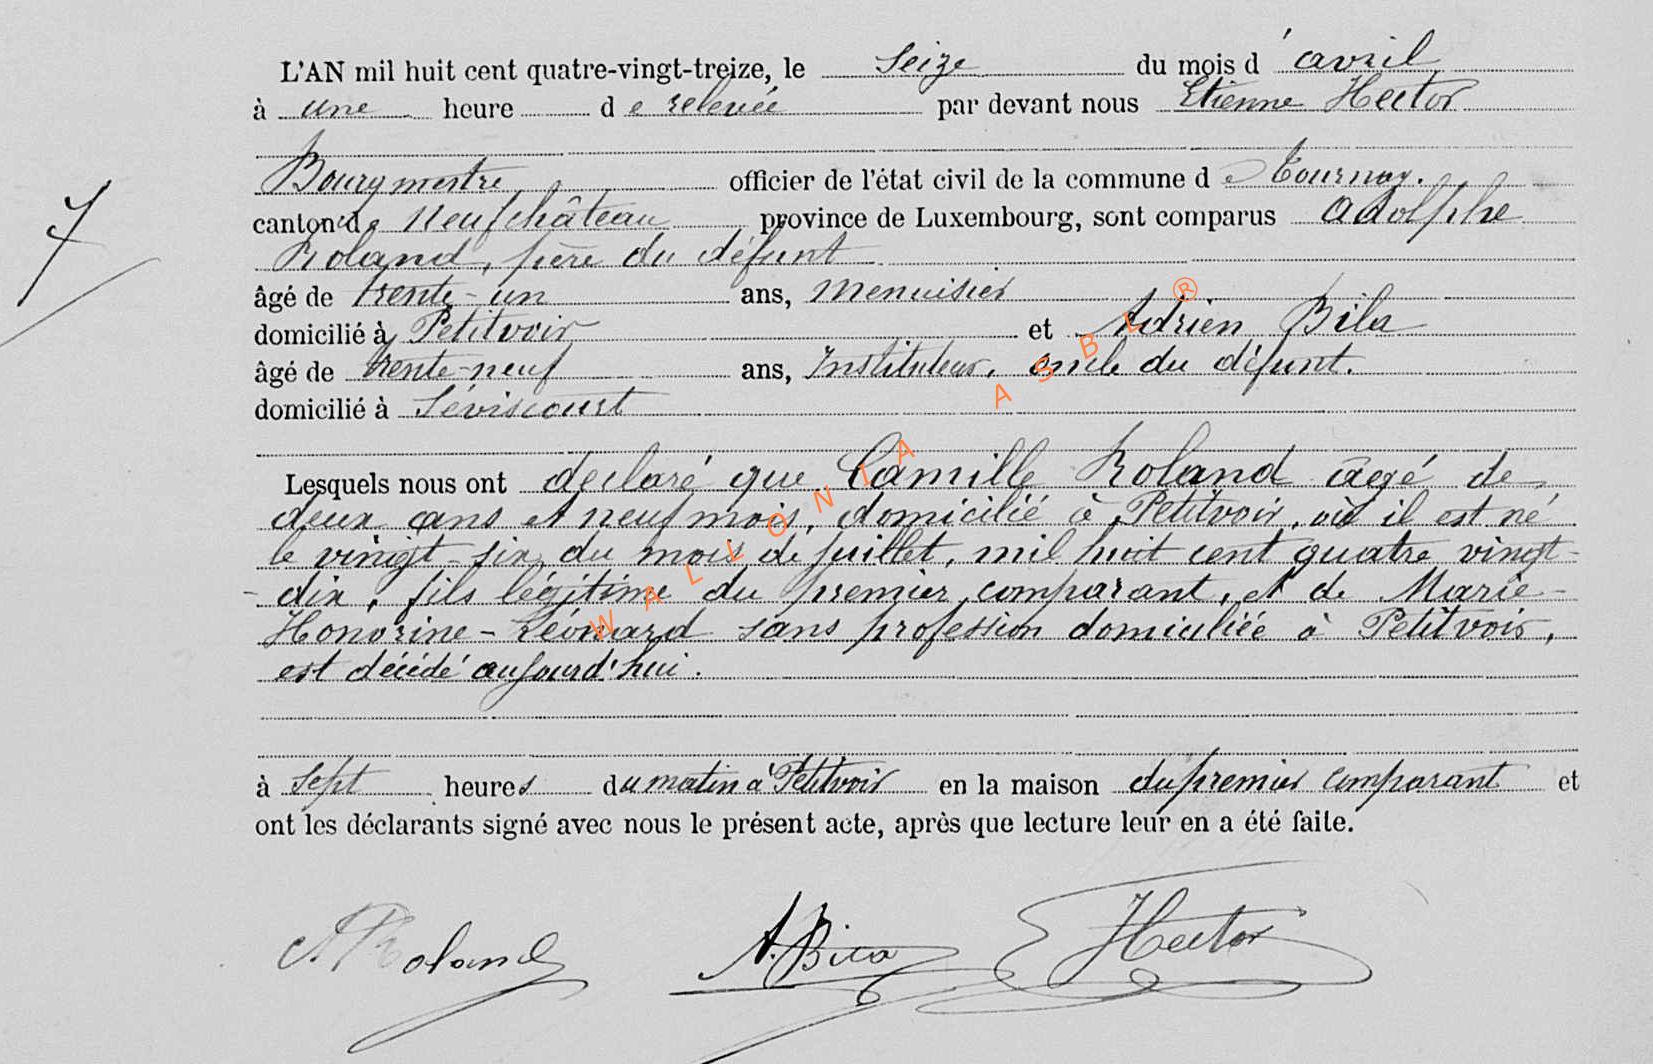 L'AN mil huit cent quatre-vingt-treize, le seize du mois d'avril
à une heure de relevée par devant nous Etienne Hector
Bourgmestre officier de l'état civil de la commune de Tournay.
canton de Neufchâteau province de Luxembourg, sont comparus Adolphe
Roland, père du défunt
7
âgé de trente-un ans, menuisier
domicilié à Petitvoir et Adrien Bila
âgé de trente-neuf ans, Instituteur, oncle du défunt.
domicilié à Séviscourt
Lesquels nous ont declaré que Camille Roland âgé de
deux ans et neuf mois, domicilié à Petitvoir, où il est né
le vingt-six du mois de juillet, mil huit cent quatre vingt-
-dix, fils légitime du premier comparant, et de Marie-
Honorine-Léonard sans profession domiciliée à Petitvoir,
est décédé aujourd'hui.
à sept heures du matin à Petitvoir en la maison du premier comparant et
ont les déclarants signé avec nous le présent acte, après que lecture leur en a été faite.
A Roland A. Bila Hector
WALLONIA ASBL ®